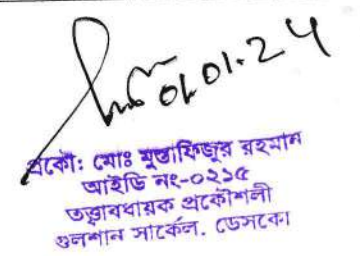 01.01.24
প্রকৌ: মোঃ মুস্তাফিজুর রহমান
আইডি নং-০২১৫
তত্ত্বাবধায়ক প্রকৌশলী
গুলশান সার্কেল, ডেসকো